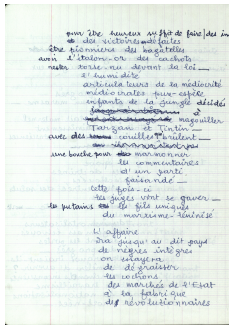 pour être heureux suffit de faire des
des victoires défaites
être pionniers des bagatelles
avoir l'étalon-or des cachots
rester torse-nu devant la loi _
l'humidité
articulateurs de la médiocrité
médiocrates pur-espèce
enfants de la jungle décidés
à magouiller
Tarzan et Tintin _
avec des couilles
une bouche pour marmonner
les commentaires
d'un parti
faisandé _
cette fois-ci
les juges vont se gaver _
les putains les fils uniques
du marxisme-léninisé
L'affaire
ira jusqu'au dit pays
de nègres intègres
on essayera
de dégraisser
les cochons
des marchés de l'État
à la fabrique
des révolutionnaires